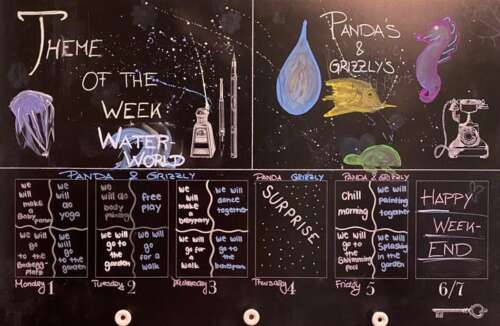 Theme
of the
Week
Water-
World
Panda's
&
Grizzly's
Panda & Grizzly
we
will
make
a
we
will
do
yoga
we
will go
to the
we
will go
to the
Monday 1
we
will do
body
painting
free
play
we
will
go to
the
garden
we
will
go for
a walk
Tuesday 2
we
will
make
a
we will
dance
together
we
will go for
a walk
we will
go to
the
Wednesday 3
Panda Grizzly
SURPRISE
Thursday 4
Panda & Grizzly
Chill
morning
we will
painting
together
we will
go to
the
swimming
pool
we will
Splashing
in the
garden
Friday 5
Happy
Week-
End
6/7